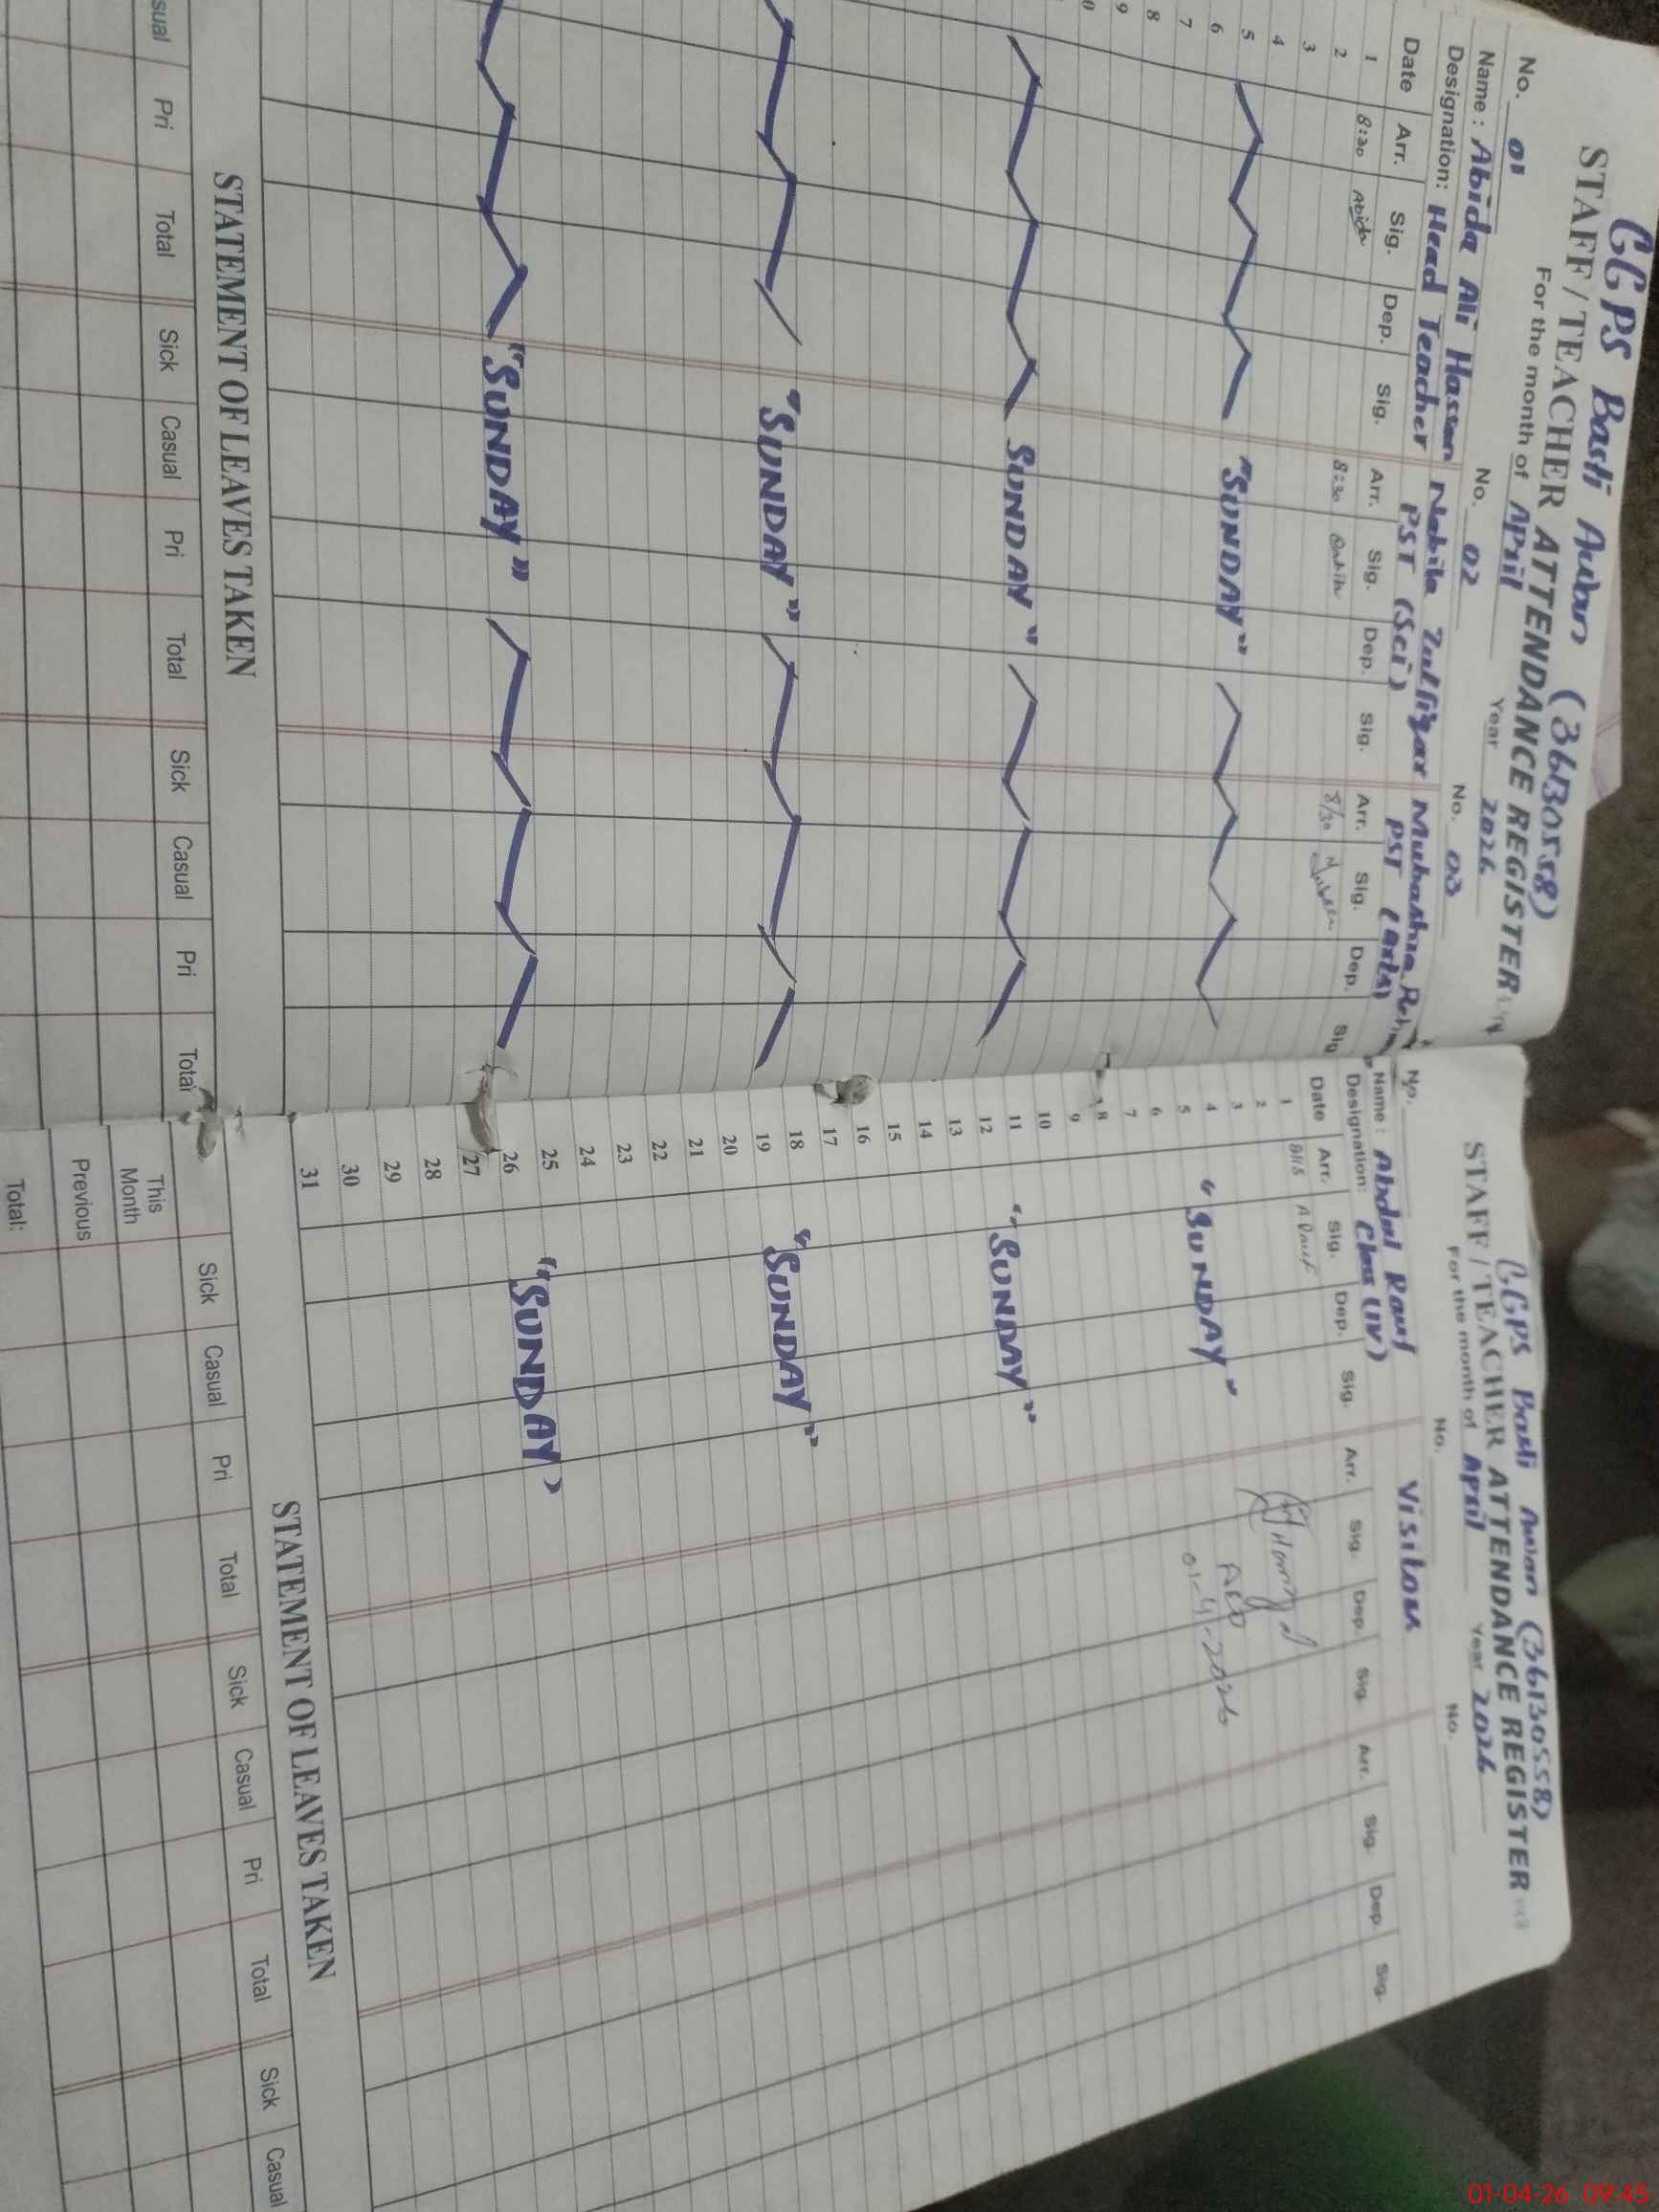 GGPS Basti Awan (36130558)
STAFF / TEACHER ATTENDANCE REGISTER
For the month of April Year 2026
No. 01 No. 02 No. 03
Name : Abida Ali Hassan Nabila Zulfiqar Mubashra
Designation: Head Teacher PST (Sci) PST (Arts)
Date Arr. Sig. Dep. Sig. Arr. Sig. Dep. Sig. Arr. Sig. Dep. Sig
1 8:30 Abida 8:30 8/30
2
3
4
5 "SUNDAY"
6
7
8
9
0
SUNDAY"
"SUNDAY"
"SUNDAY"
STATEMENT OF LEAVES TAKEN
sual Pri Total Sick Casual Pri Total Sick Casual Pri Total
GGPS Basti Awan (36130558)
STAFF / TEACHER ATTENDANCE REGISTER
For the month of April Year 2026
No. No. No.
Name : Abdul Rauf Visitors
Designation: Class (IV)
Date Arr. Sig. Dep. Sig. Arr. Sig. Dep. Sig. Arr. Sig. Dep. Sig.
1 8:15 A Rauf
2
3
4
5 "SUNDAY"
AEO
01-4-2026
6
7
8
9
10
11
12 "SUNDAY"
13
14
15
16
17
18
19 "SUNDAY"
20
21
22
23
24
25
26 "SUNDAY"
27
28
29
30
31
STATEMENT OF LEAVES TAKEN
Sick Casual Pri Total Sick Casual Pri Total Sick Casual
This Month
Previous
Total:
01-04-26 09:45